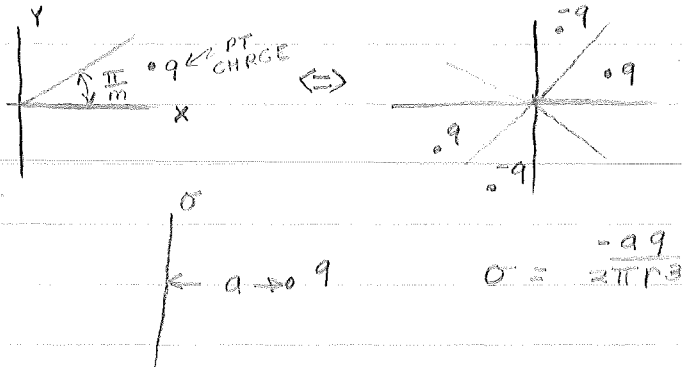 Y
-q
π/m
• q ← PT CHRGE
⟺
• q
X
• q
• -q
σ
← a → • q
σ = -aq / 2πr³